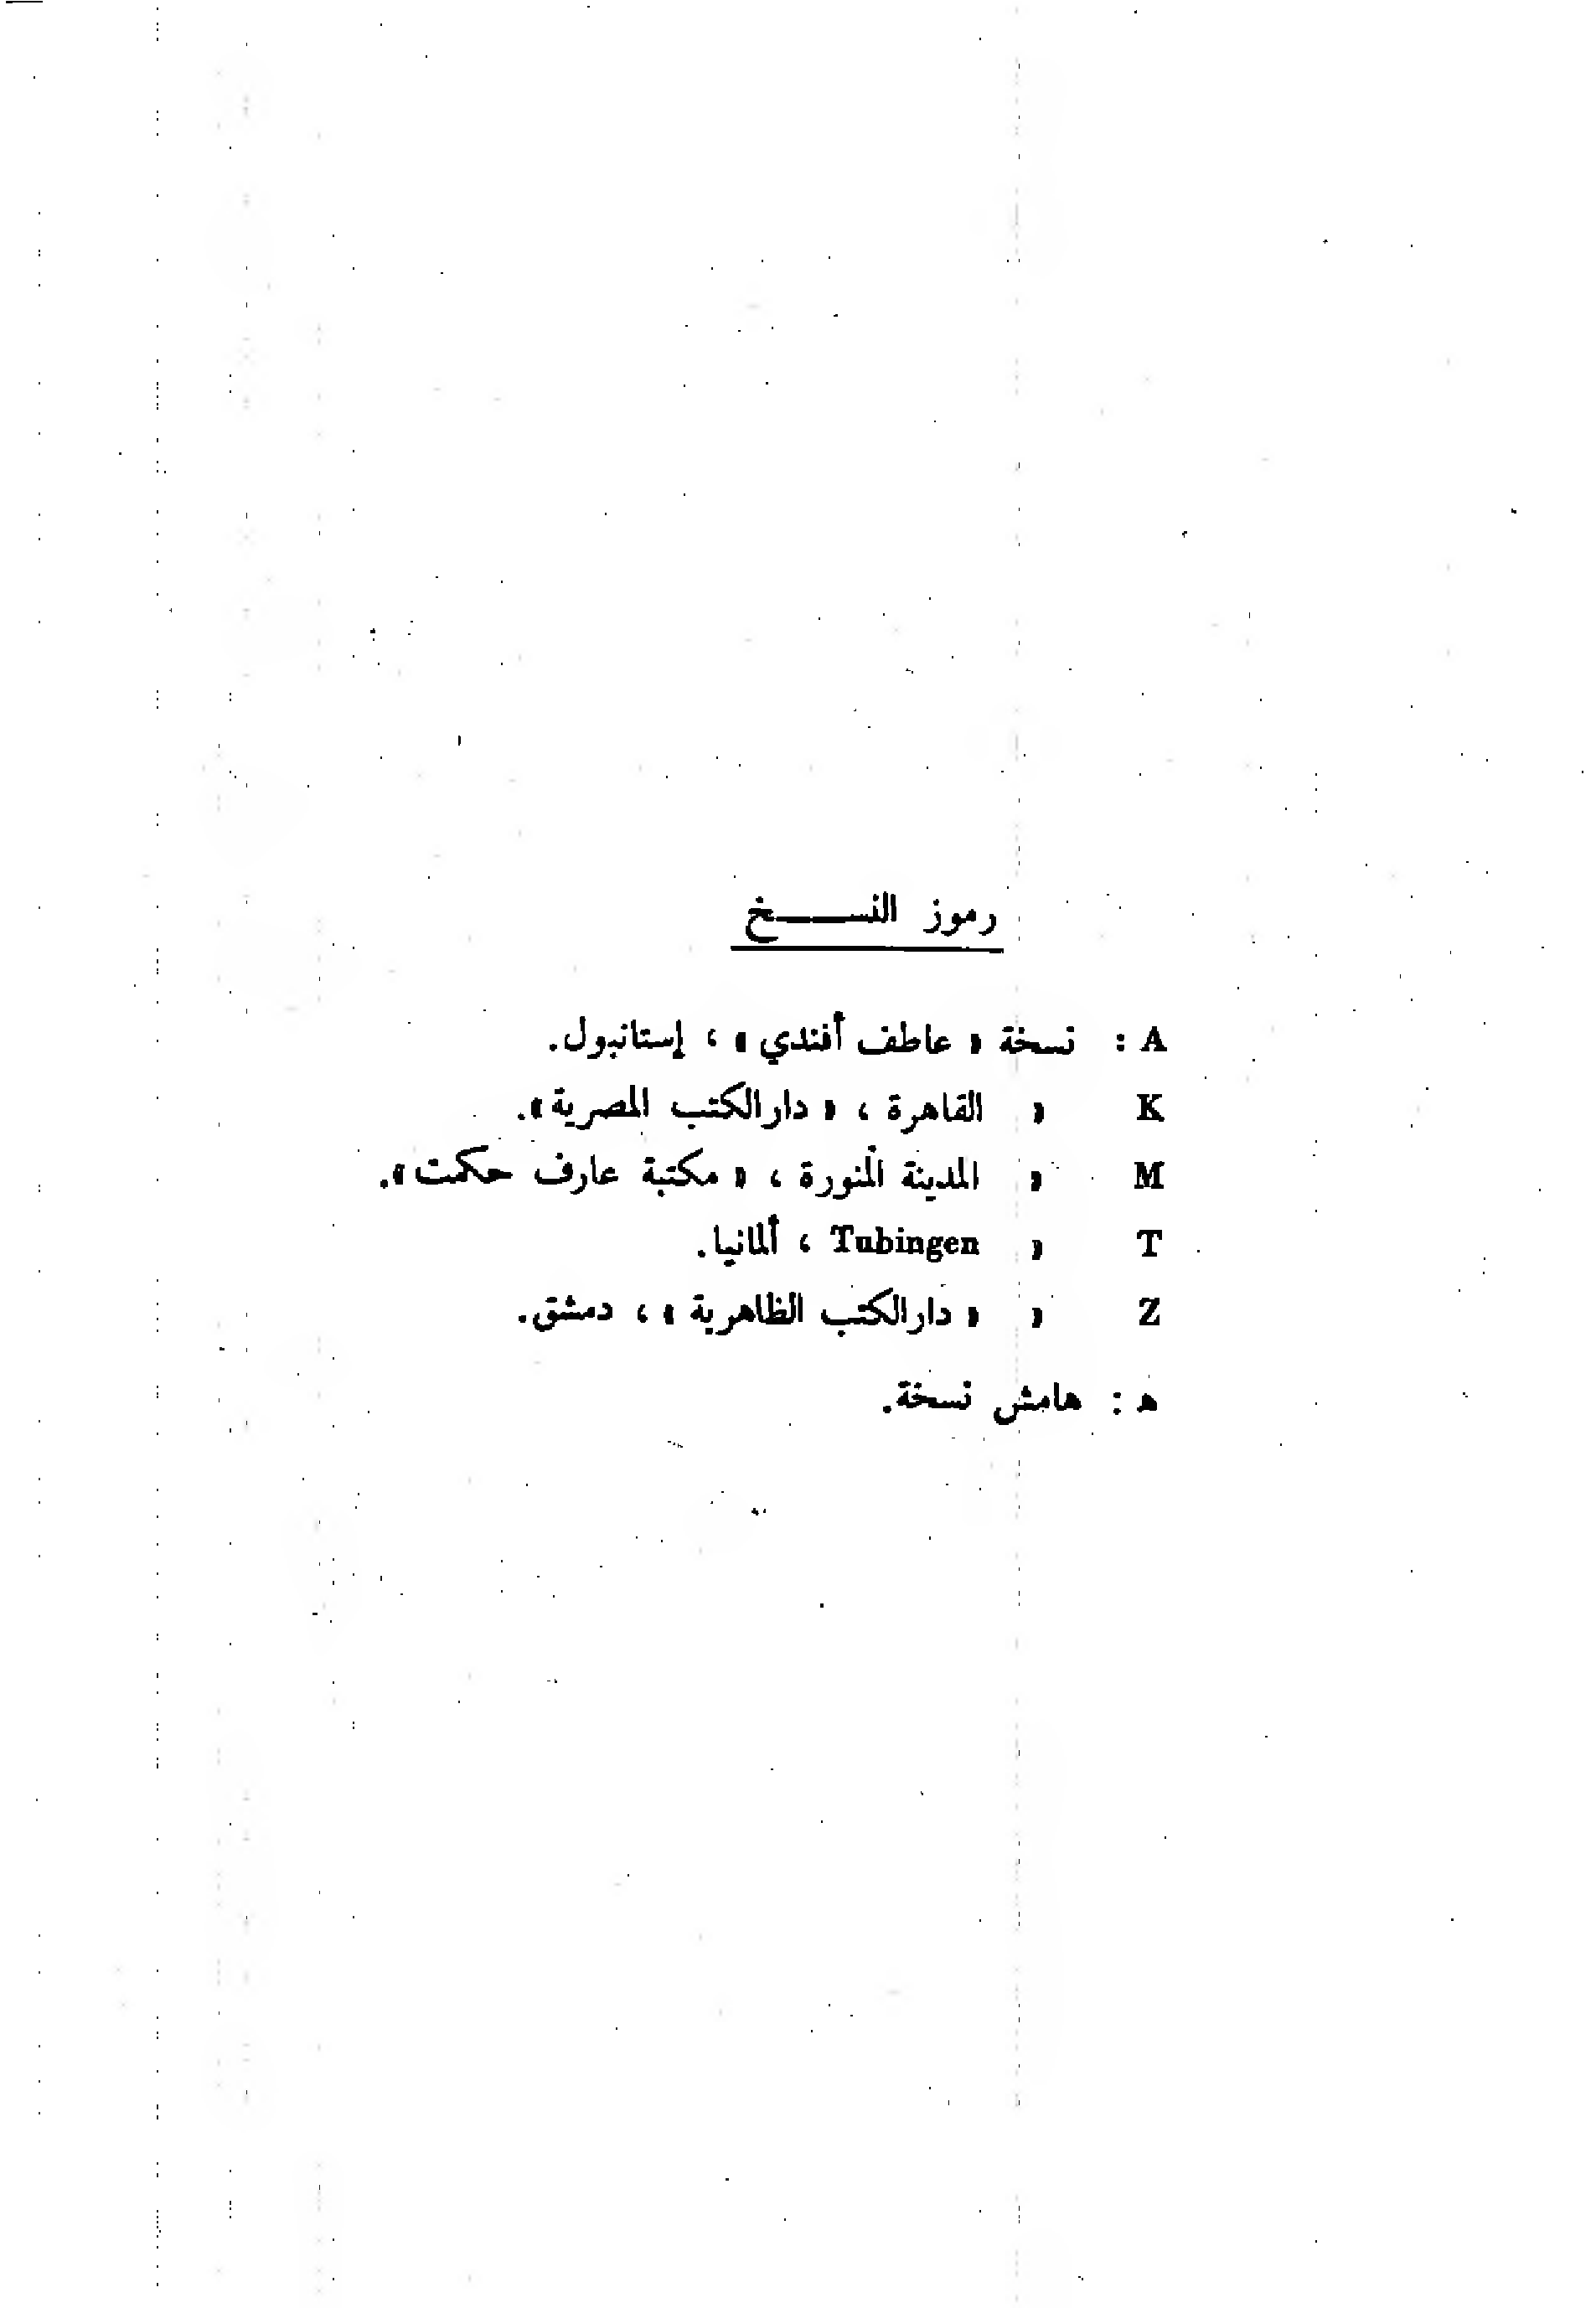 رموز النســـــخ
A : نسخة « عاطف أفندي » ، إستانبول.
K » القاهرة ، « دار الكتب المصرية ».
M » المدينة المنورة ، « مكتبة عارف حكمت ».
T » Tubingen ، ألمانيا.
Z » « دار الكتب الظاهرية » ، دمشق.
ﻫ : هامش نسخة.